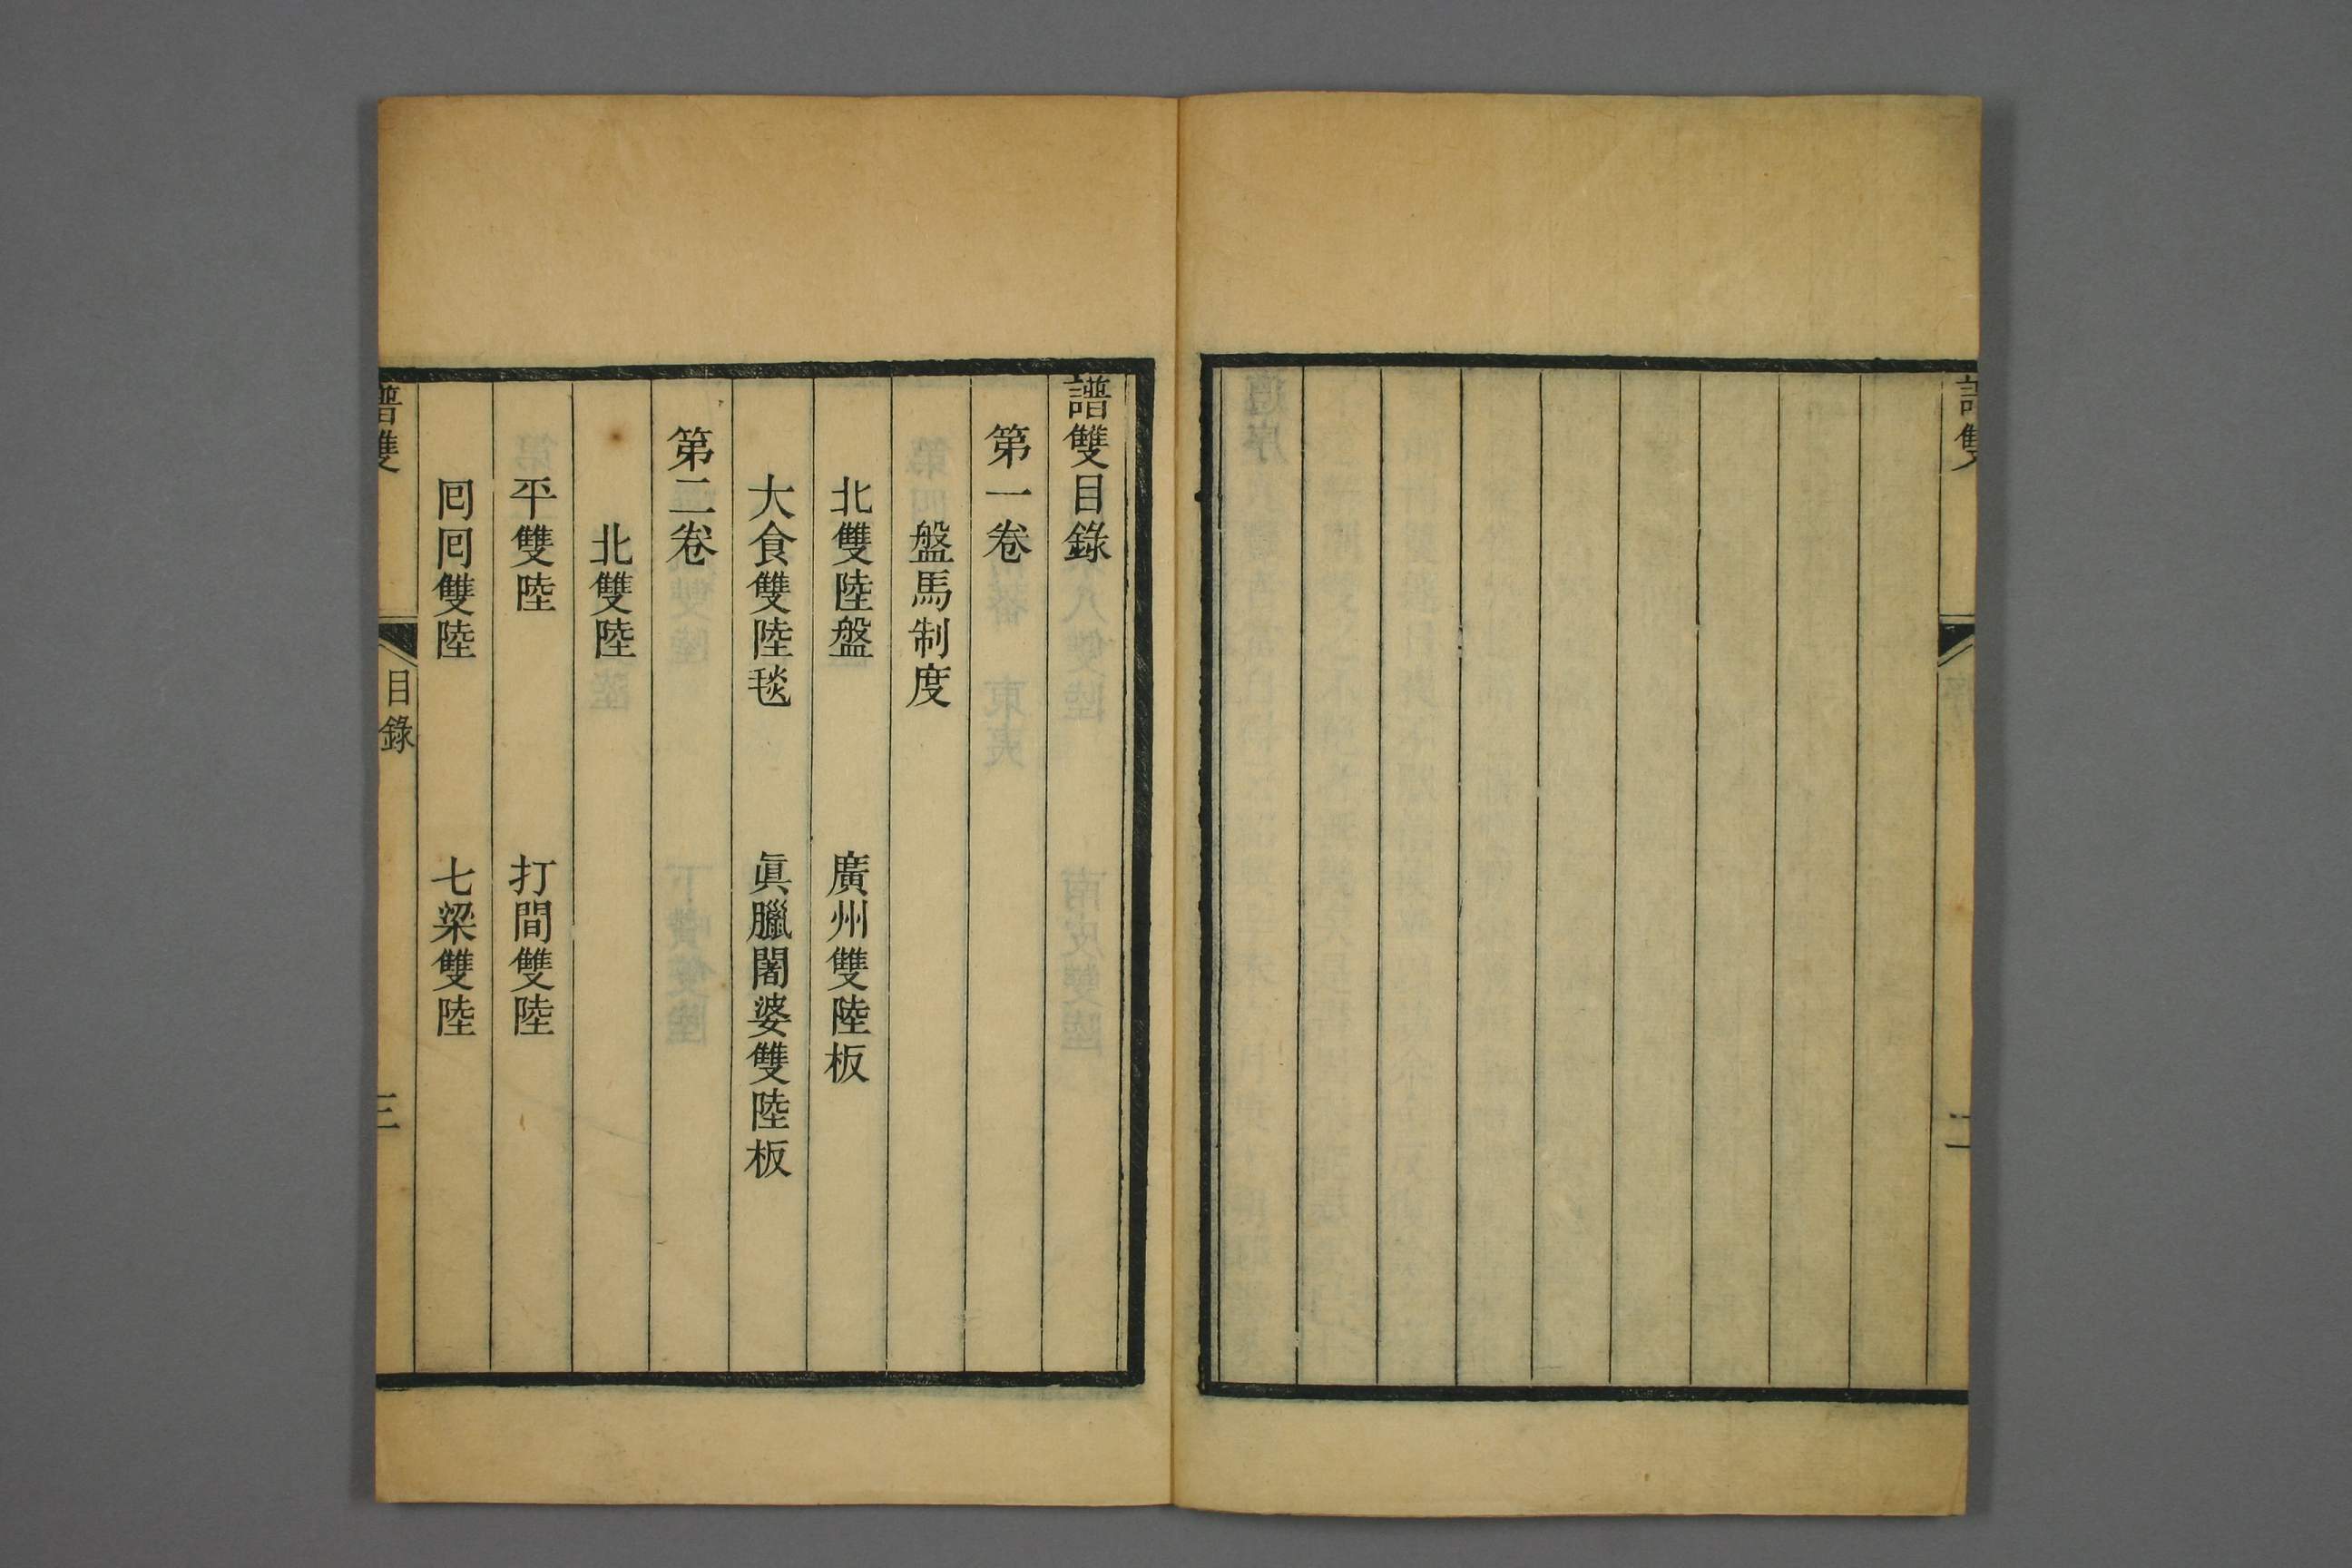 譜雙
二
譜雙目錄
第一卷
盤馬制度
北雙陸盤　廣州雙陸板
大食雙陸毯　眞臘闍婆雙陸板
第二卷
北雙陸
平雙陸　打間雙陸
囘囘雙陸　七梁雙陸
譜雙　目錄　三